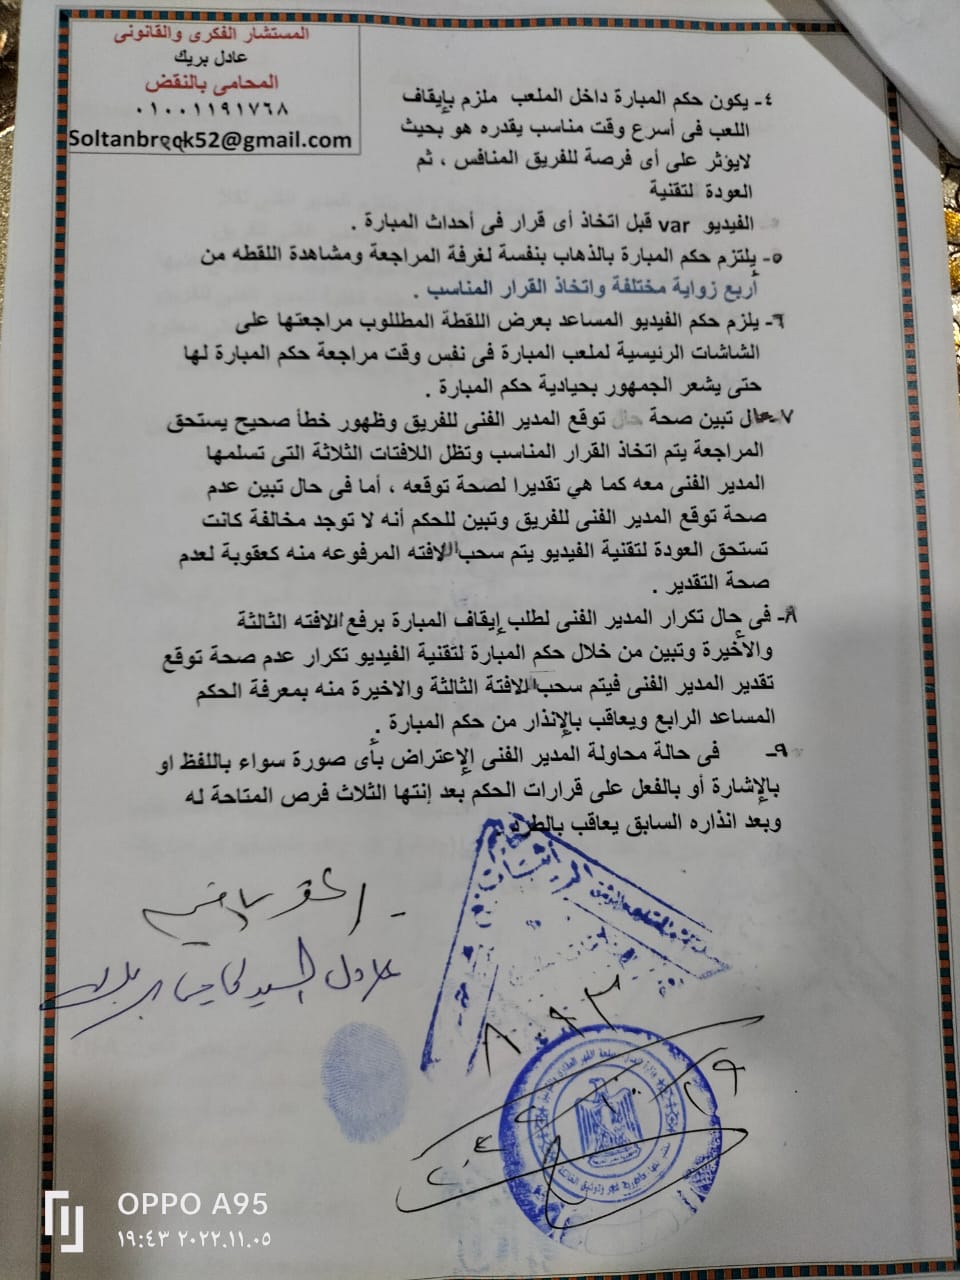 المستشار الفكرى والقانونى
عادل بريك
المحامى بالنقض
٠١٠٠١١٩١٧٦٨
Soltanbreek52@gmail.com
٤- يكون حكم المبارة داخل الملعب ملزم بإيقاف
اللعب فى أسرع وقت مناسب يقدره هو بحيث
لايؤثر على أى فرصة للفريق المنافس ، ثم
العودة لتقنية
الفيديو var قبل اتخاذ أى قرار فى أحداث المبارة .
٥- يلتزم حكم المبارة بالذهاب بنفسة لغرفة المراجعة ومشاهدة اللقطه من
أربع زواية مختلفة واتخاذ القرار المناسب .
٦- يلزم حكم الفيديو المساعد بعرض اللقطة المطللوب مراجعتها على
الشاشات الرئيسية لملعب المبارة فى نفس وقت مراجعة حكم المبارة لها
حتى يشعر الجمهور بحيادية حكم المبارة .
٧- حال تبين صحة حال توقع المدير الفنى للفريق وظهور خطأ صحيح يستحق
المراجعة يتم اتخاذ القرار المناسب وتظل اللافتات الثلاثة التى تسلمها
المدير الفنى معه كما هي تقديرا لصحة توقعه ، أما فى حال تبين عدم
صحة توقع المدير الفنى للفريق وتبين للحكم أنه لا توجد مخالفة كانت
تستحق العودة لتقنية الفيديو يتم سحب اللافته المرفوعه منه كعقوبة لعدم
صحة التقدير .
٨- فى حال تكرار المدير الفنى لطلب إيقاف المبارة برفع الافته الثالثة
والأخيرة وتبين من خلال حكم المبارة لتقنية الفيديو تكرار عدم صحة توقع
تقدير المدير الفنى فيتم سحب اللافتة الثالثة والاخيرة منه بمعرفة الحكم
المساعد الرابع ويعاقب بالإنذار من حكم المبارة .
٩- فى حالة محاولة المدير الفنى الإعتراض بأى صورة سواء باللفظ او
بالإشارة أو بالفعل على قرارات الحكم بعد إنتها الثلاث فرص المتاحة له
وبعد انذاره السابق يعاقب بالطرد
عادل السيد
OPPO A95
١٩:٤٣ ٢٠٢٢.١١.٠٥